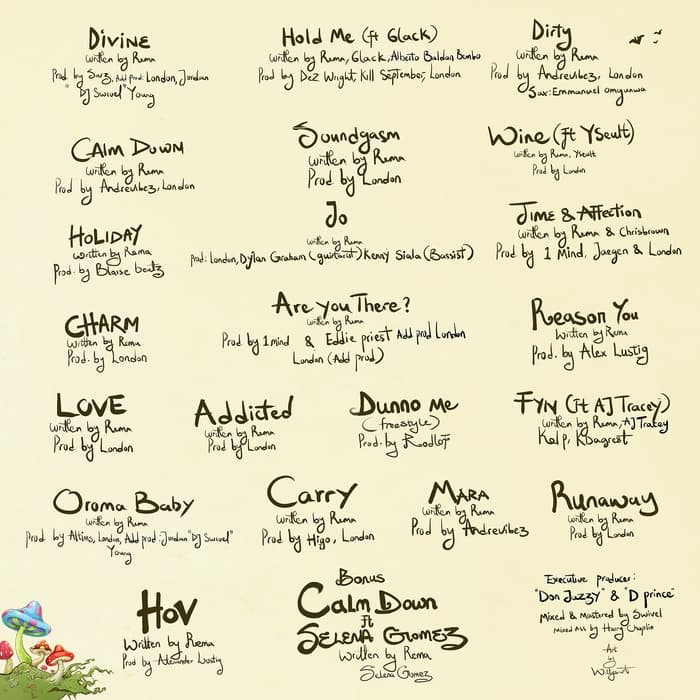 DIVINE
written by Rema
Prod by Sarz, Add prod: London, Jordan
"DJ Swivel" Young
Hold Me (ft 6lack)
written by Rema, 6lack, Alberto Baldan Bembo
Prod by Dez Wright, Kill September, London
Dirty
written by Rema
Prod by Andrevibez, London
Sax: Emmanuel
CALM DOWN
written by Rema
Prod by Andrevibez, London
Soundgasm
written by Rema
Prod by London
Wine (ft Yseult)
written by Rema, Yseult
Prod by London
HOLIDAY
written by Rema
Prod. by Blaise beatz
Jo
written by Rema
prod: London, Dylan Graham (guitarist) Kenny Siala (Bassist)
TIME & AFFECTION
written by Rema & Chrisbrown
Prod by 1 Mind, Jaegen & London
CHARM
written by Rema
Prod. by London
Are You There?
written by Rema
Prod by 1mind & Eddie priest Add prod London
London (Add prod)
Reason You
Written by Rema
Prod. by Alex Lustig
LOVE
written by Rema
Prod by London
Addicted
written by Rema
Prod by London
DUNNO Me
(freestyle)
Prod. by
FYN (ft AJ Tracey)
written by Rema, AJ Tracey
Kel P, KDaGreat
Oroma Baby
written by Rema
prod by Altims, London, Add prod: Jordan "DJ Swivel"
Young
Carry
written by Rema
Prod by Higo, London
MARA
written by Rema
Prod by Andrevibez
Runaway
written by Rema
Prod by London
HOV
Written by Rema
Prod by Alexander Lustig
Bonus
CALM DOWN
ft
SELENA GOMEZ
Written by Rema
Selena Gomez
Executive producer:
"Don Jazzy" & "D prince"
Mixed & Mastered by Swivel
Mixed Ass by Harry Chaplin
Art
by